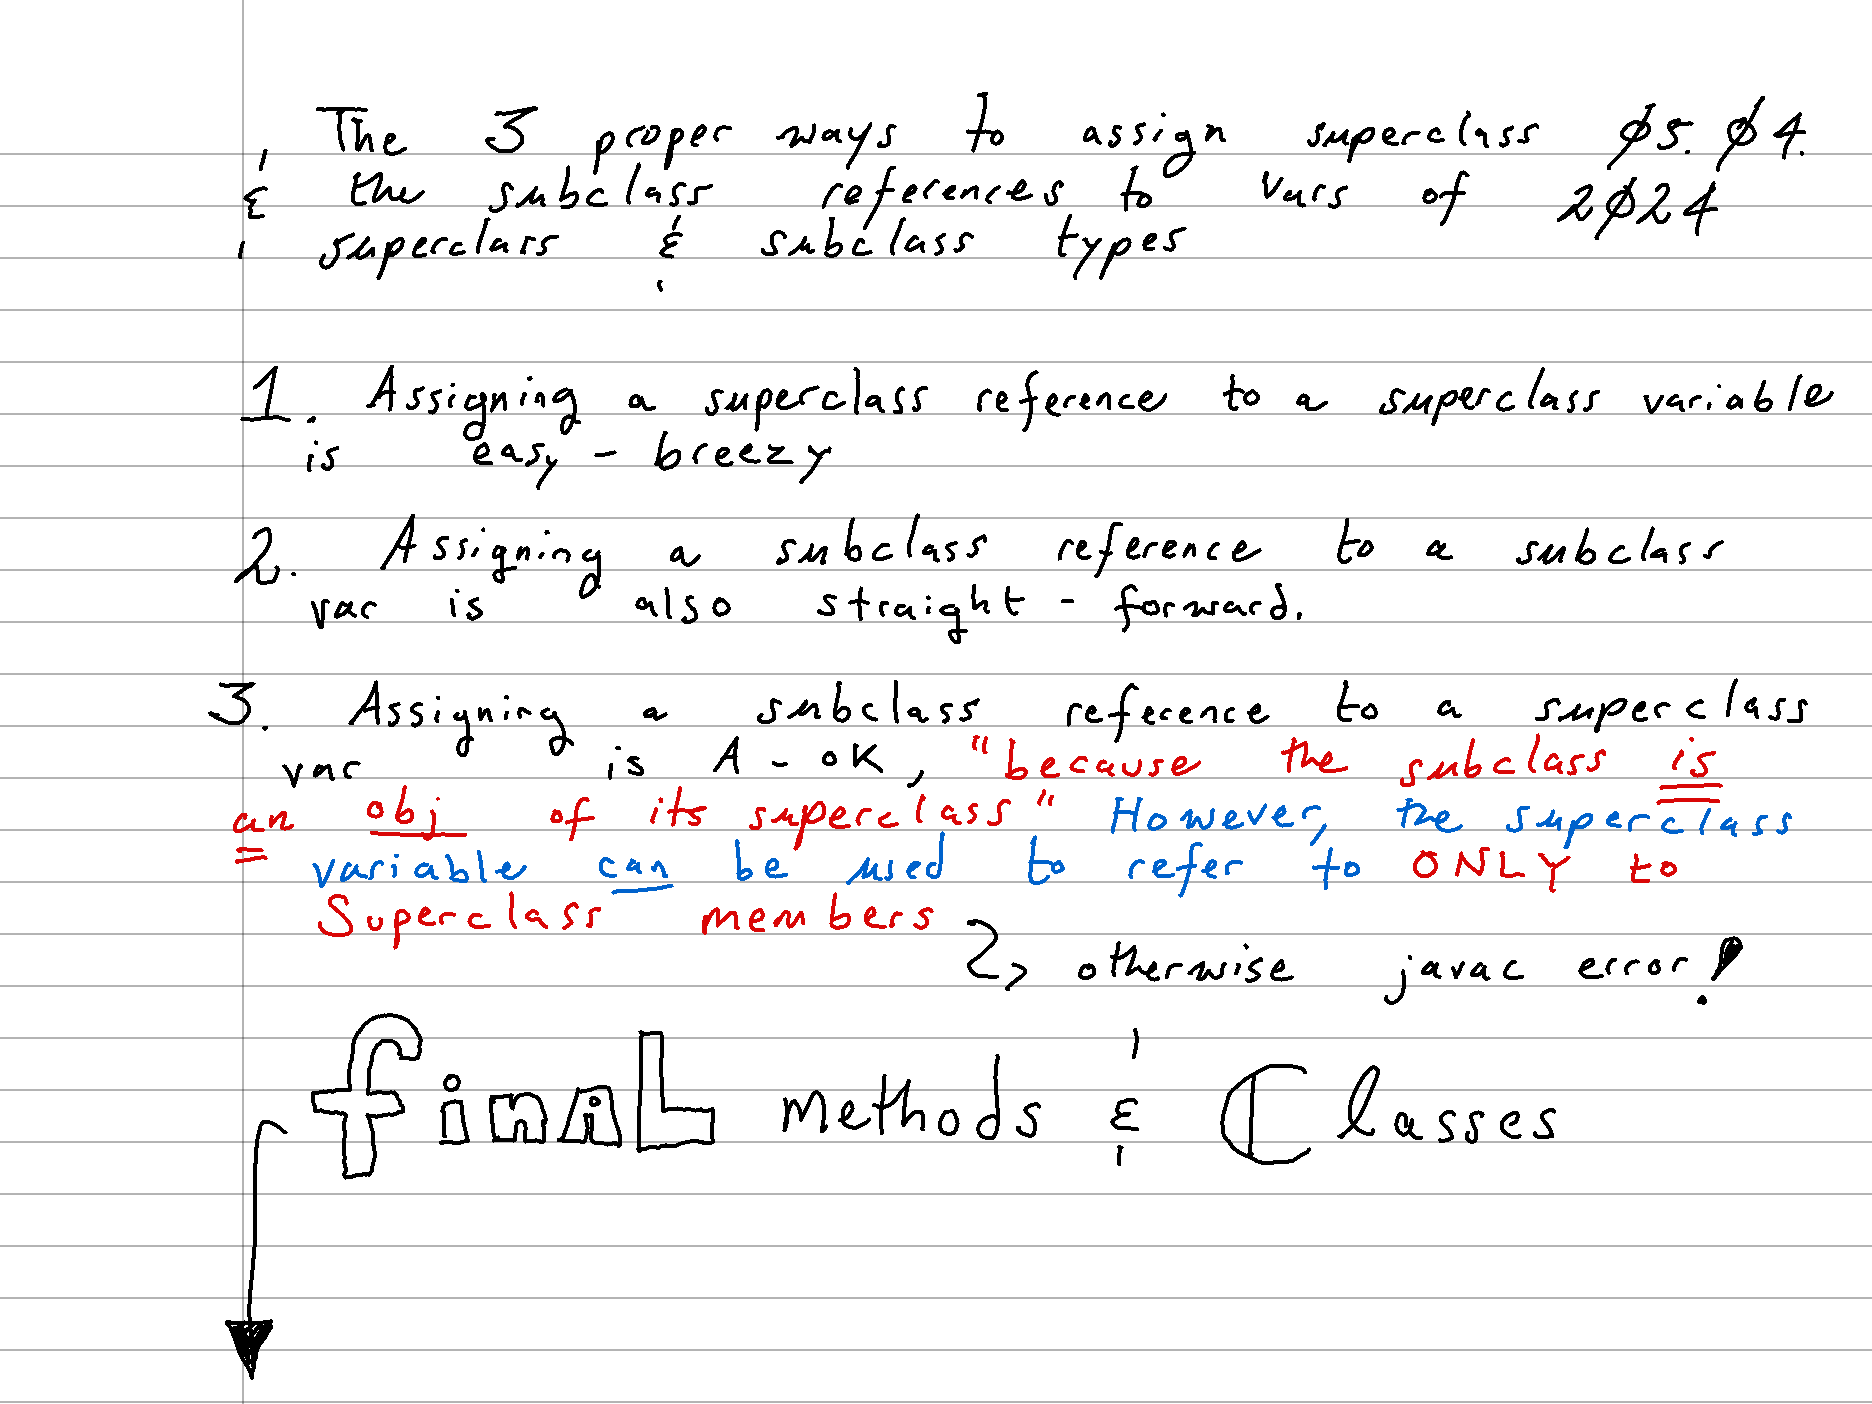 The 3 proper ways to assign superclass Ø5. Ø4.
& the subclass references to vars of 2Ø24
superclass & subclass types
1. Assigning a superclass reference to a superclass variable
is easy - breezy
2. Assigning a subclass reference to a subclass
var is also straight - forward.
3. Assigning a subclass reference to a superclass
var is A - OK, "because the subclass is
an obj of its superclass" However, the superclass
variable can be used to refer to ONLY to
Superclass members
otherwise javac error!
finaL methods & Classes